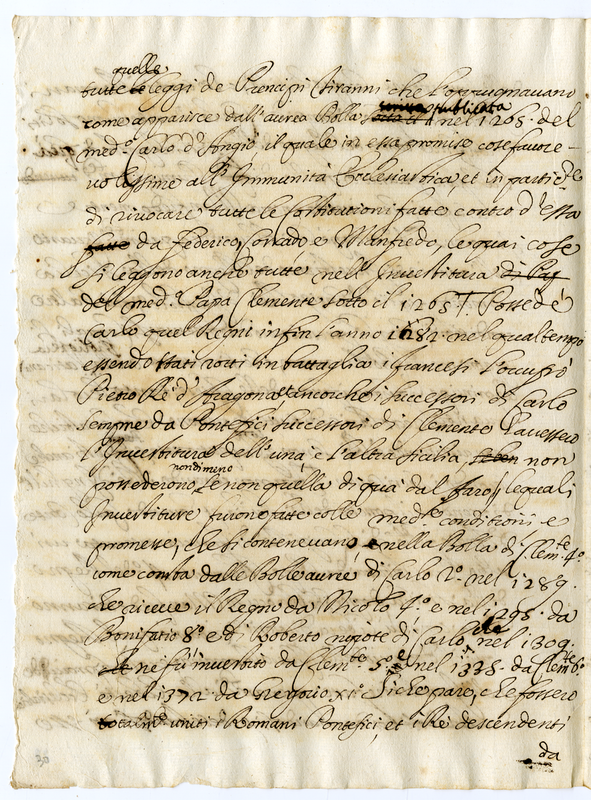 quelle
tutte le leggi de Prencipi Tiranni che l'oppugnavano
come apparisce dall'aurea Bolla sotto il publicata nel 1265. del
med.º Carlo d'Angiò il quale in essa promise cose favore-
volissime all'Immunità Ecclesiastica, et in partic.re
di rivocare tutte le Costitutioni fatte contro d'essa
fatte da Federico, Corrado, e Manfredo, le quai cose
si leggono anche tutte nell'Investitura di Pap
del med. Papa Clemente sotto il 1265. Possedè
Carlo quel Regni infin l'anno 1282. nel qual tempo
essendo stati rotti in battaglia i francesi l'occupò
Pietro Re d'Aragona, et ancorche i successori di Carlo
sempre da Pontefici successori di Clemente havessero
l'Investitura dell'una, e l'altra Sicilia, non
nondimeno
possederono se non quella di quà dal faro, le quali
Investiture furon fatte colle med.e conditioni e
promesse, che si contenevano, e nella Bolla di Clem.te 4º
come consta dalle Bolle auree di Carlo 2.º nel 1289.
che riceve il Regno da Nicolò 4.º e nel 1295. da
Bonifatio 8.º e di Roberto nipote di Carlo che nel 1309.
ne fù investito da Clem.te 5.º e nel 1338. da Clem.te 6.º
e nel 1372. da Gregorio XI.º Siche pare, che fossero
uniti i Romani Pontefici, et i Rè descendenti
da
30